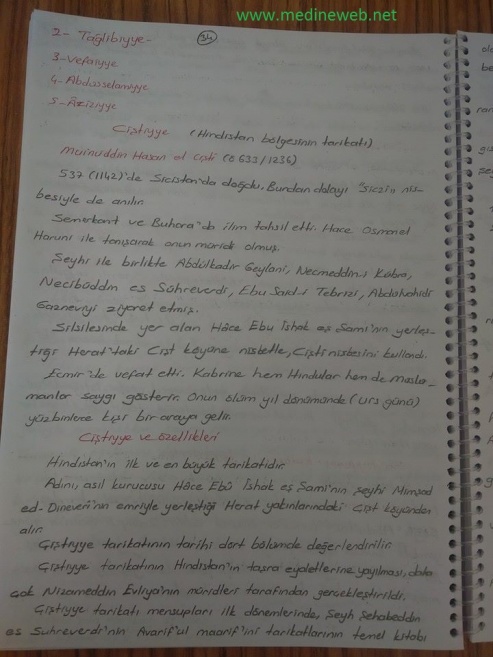 www.medineweb.net
34
2- Tağlibiyye-
3-Vefaiyye
4-Abdusselamiyye
5-Aziziyye
Çiştiyye (Hindistan bölgesinin tarikatı)
Muinuddin Hasan el Çişti (ö 633/1236)
537 (1142)'de Sicistan'da doğdu. Bundan dolayı "Siczi" nis-
besiyle de anılır.
Semerkant ve Buhara'da ilim tahsil etti. Hace Osman el
Haruni ile tanışarak onun müridi olmuş.
Şeyhi ile birlikte Abdülkadir Geylani, Necmeddin-i Kübra,
Necibüddin es Sühreverdi, Ebu Said-i Tebrizi, Abdulvahidi
Gaznevi'yi ziyaret etmiş.
Silsilesinde yer alan Hâce Ebu İshak eş Şami'nin yerleş-
tiği Herat'taki Çişt köyüne nisbetle, Çişti nisbesini kullandı.
Ecmir'de vefat etti. Kabrine hem Hindular hem de müslü-
manlar saygı gösterir. Onun ölüm yıl dönümünde (urs günü)
yüzbinlerce kişi bir araya gelir.
Çiştiyye ve özellikleri
Hindistan'ın ilk ve en büyük tarikatıdır.
Adını, asıl kurucusu Hâce Ebû İshak eş Şami'nin şeyhi Mimşad
ed-Dineveri'nin emriyle yerleştiği Herat yakınlarındaki Çişt köyünden
alır.
Çiştiyye tarikatının tarihi dört bölümde değerlendirilir.
Çiştiyye tarikatının Hindistan'ın taşra eyaletlerine yayılması, daha
çok Nizameddin Evliya'nın müridleri tarafından gerçekleştirildi.
Çiştiyye tarikatı mensupları ilk dönemlerinde, Şeyh Şehabeddin
es Suhreverdi'nin Avarif'ul maarif'ini tarikatlarının temel kitabı